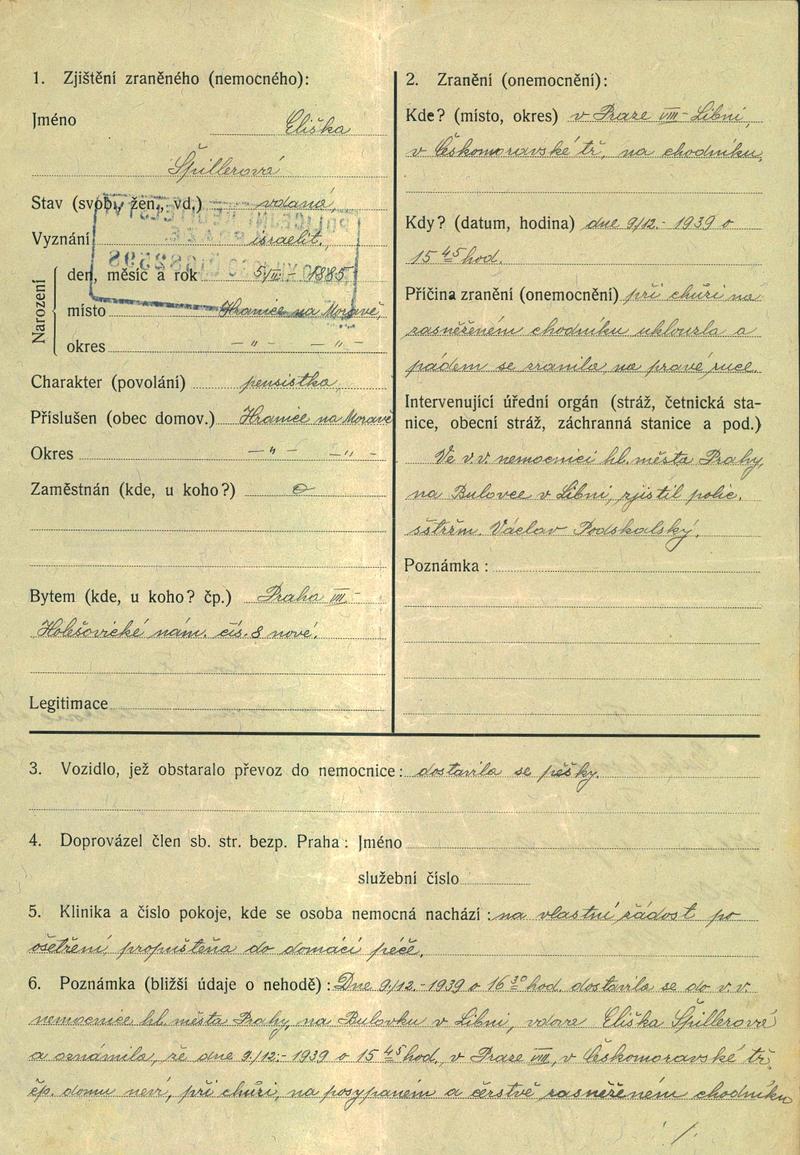 1. Zjištění zraněného (nemocného):
Jméno Eliška
Špillerová
Stav (svob., žen., vd.) vdaná,
Vyznání israelit.,
Narození
den, měsíc a rok 5/II. - 1885
místo Hranice na Moravě,
okres — " — — " —
Charakter (povolání) pensistka,
Příslušen (obec domov.) Hranice na Moravě
Okres — " — — " —
Zaměstnán (kde, u koho?)
Bytem (kde, u koho? čp.) Praha VII. -
Holešovické nám. čís. 8 nové.
Legitimace
2. Zranění (onemocnění):
Kde? (místo, okres) v Praze VIII - Libni,
v Českomoravské tř. na chodníku,
Kdy? (datum, hodina) dne 9/12. - 1939 o
15 45 hod.
Příčina zranění (onemocnění) při chůzi na
zasněženém chodníku uklouzla a
pádem se zranila, na pravé ruce.
Intervenující úřední orgán (stráž, četnická sta-
nice, obecní stráž, záchranná stanice a pod.)
Ve v.v. nemocnici hl. města Prahy,
na Bulovce v Libni, zjistil polic.
sstržm. Václav Podskalský.
Poznámka :
3. Vozidlo, jež obstaralo převoz do nemocnice: dostavila se pěšky.
4. Doprovázel člen sb. str. bezp. Praha : Jméno
služební číslo
5. Klinika a číslo pokoje, kde se osoba nemocná nachází : na vlastní žádost po
ošetření, propuštěna do domácí péče.
6. Poznámka (bližší údaje o nehodě) : Dne 9/12. - 1939 o 16 30 hod. dostavila se do v. v.
nemocnice hl. města Prahy, na Bulovku v Libni, vdova Eliška Špillerová
a oznámila, že dne 9/12. - 1939 o 15 45 hod., v Praze VIII, v Českomoravské tř.
čp. domu neví, při chůzi, na posypaném a čerstvě zasněženém chodníku
./.